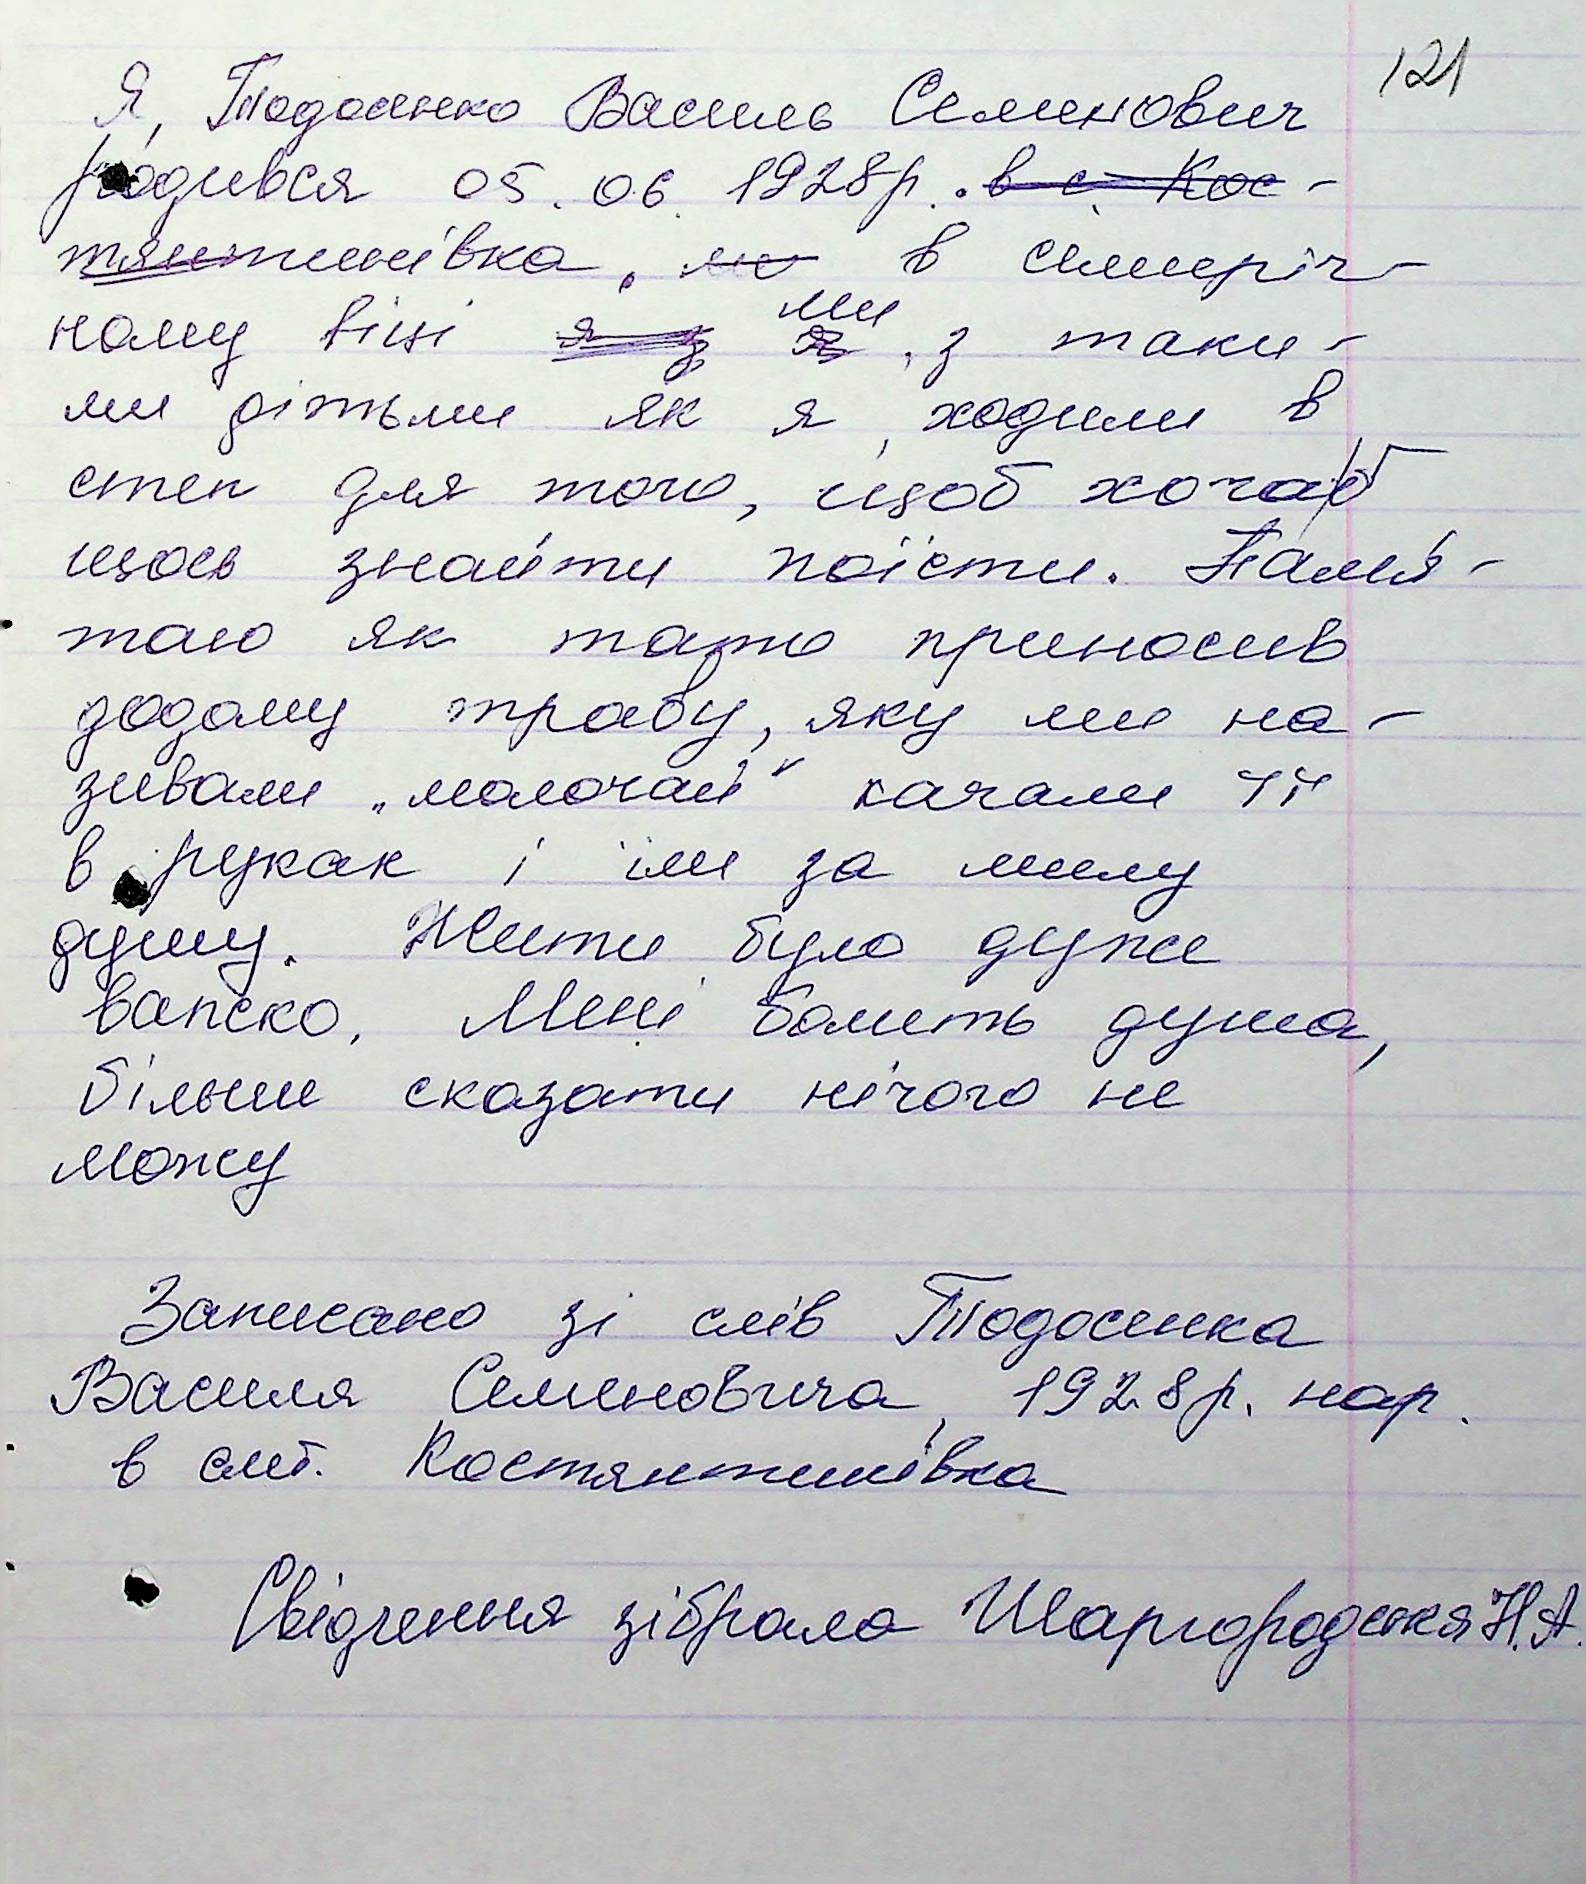 121
Я, Тодосенко Василь Семенович
родився 05.06.1928р. в с. Кос-
тянтинівка, ми в семиріч-
ному віці я з ми я, з таки-
ми дітьми як я, ходили в
степ для того, щоб хоча б
щось знайти поїсти. Памя-
таю як тато приносив
додому траву, яку ми на-
зивали „молочай" качали її
в руках і їли за милу
душу. Жити було дуже
валско. Мені болить душа,
більше сказати нічого не
можу
Записано зі слів Тодосенка
Василя Семеновича, 1928р. нар.
в смт. Костянтинівка
Свідчення зібрала Шаргородська Н.А.